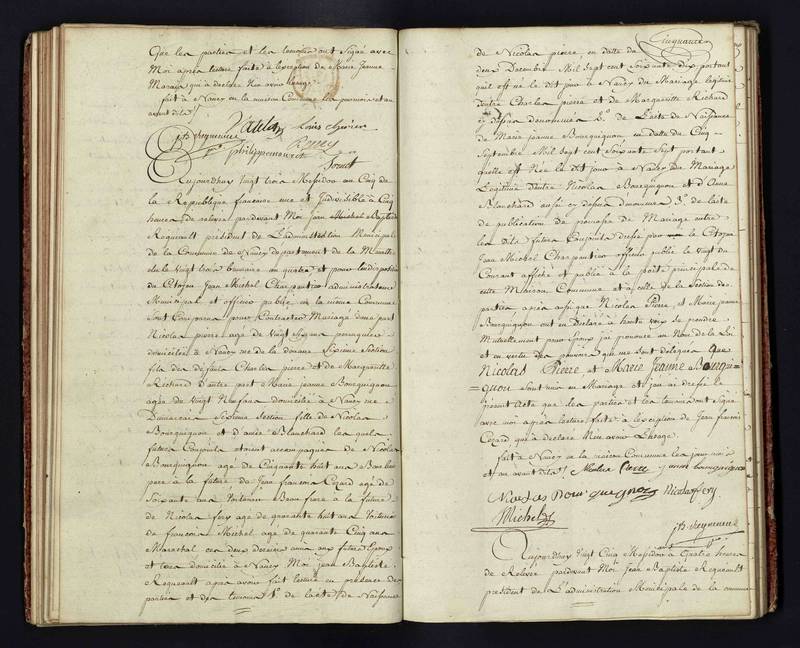 Que les parties et les temoins ont Signé avec
Moi après lecture faite à l'exception de Marie Jeanne
qui a declaré n'en avoir l'usage
fait à Nancy en la maison Commune les jour mois et an
avant dits
Louis
philippe
Aujourdhuy Vingt trois Messidor an Cinq de
la Republique francoise une et Indivisible à Cinq
heures de relevée pardevant Moi Jean Michel Baptiste
Regneault président de L'administration Municipale
de la Commune de Nancy departement de la Meurthe
du Citoyen Jean Michel Charpentier administrateur
Municipal et officier public de la même Commune
Sont Comparus pour Contracter Mariage d'une part
Nicolas pierre agé de Vingt Sept ans perruquier
domicilié à Nancy rue de la douane Sixieme Section
fils des defunts Charles pierre et de Marguerite
Richard d'autre part Marie jeanne Bourguignon
agée de Vingt Neuf ans domiciliée à Nancy rue
Septieme Section fille de Nicolas
Bourguignon et d'Anne Blanchard les quels
futurs Conjoints étoient accompagnés de Nicolas
Bourguignon agé de Cinquante huit ans
pere à la future de Jean francois Cezard agé de
Soixante ans Voiturier Beau frere à la future
de Nicolas fery agé de quarante huit ans Voiturier
de francois Michel agé de quarante Cinq ans
Marechal ces deux derniers amis aux futurs Epoux
et tous domiciliés à Nancy Moi jean Baptiste
Regneault après avoir fait lecture en presence des
parties et des temoins 1°. de l'acte de Naissance
Cinquante
de Nicolas pierre en datte du
deux Decembre Mil Sept cent Soixante dix portant
qu'il est né le dit jour à Nancy du Mariage legitime
d'entre Charles pierre et de Marguerite Richard
cy dessus denommés 2°. de l'acte de Naissance
de Marie jeanne Bourguignon en datte du Cinq
Septembre Mil Sept cent Soixante Sept portant
qu'elle est Née le dit jour à Nancy du Mariage
Legitime d'entre Nicolas Bourguignon et d'Anne
Blanchard aussi cy dessus denommés 3°. de l'acte
de publication de promesse de Mariage entre
les dits futurs Conjoints dressé par le Citoyen
Jean Michel Charpentier officier public le Vingt du
Courant affiché et publié à la porte principale de
cette Maison Commune et à celle de la Section des
parties après aussi que Nicolas Pierre et Marie jeanne
Bourguignon ont eu Déclaré à haute voix se prendre
Mutuellement pour Epoux j'ai prononcé au Nom de la Loi
et en vertu des pouvoirs qui me sont delegués que
Nicolas Pierre et Marie Jeanne Bourgui=
=gnon Sont unis en Mariage et j'en ai dressé le
présent acte que les parties et les temoins ont Signé
avec moi après lecture faite à l'exception de Jean francois
Cezard qui a declaré N'en avoir L'usage
fait à Nancy en la maison Commune les jour mois
et an avant dits
Nicolas Bourguignon Nicolas fery
Michel
Aujourdhuy Vingt Cinq Messidor à Quatre heures
de Relevée pardevant Moi Jean Baptiste Regneault
président de L'administration Municipale de la commune